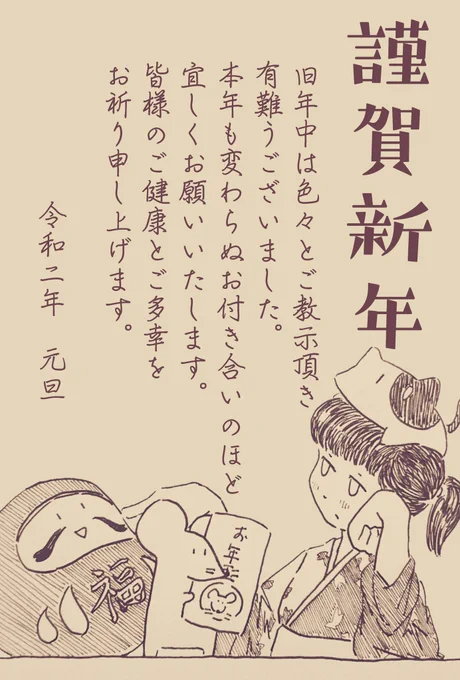 謹賀新年
旧年中は色々とご教示頂き
有難うございました。
本年も変わらぬお付き合いのほど
宜しくお願いいたします。
皆様のご健康とご多幸を
お祈り申し上げます。
令和二年 元旦
福
お年玉